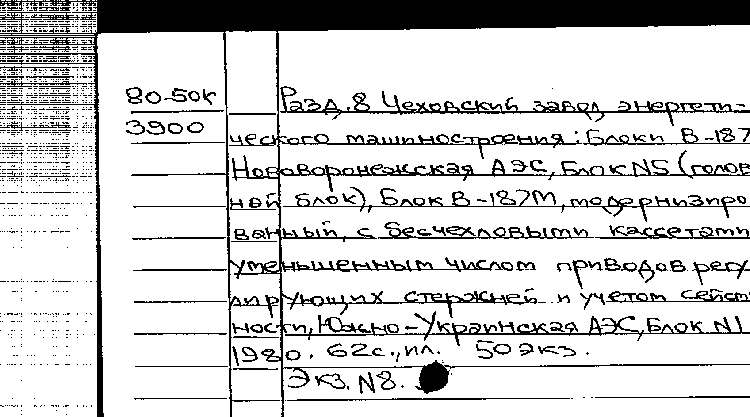 80-50к
3900
Разд. 8 Чеховский завод энергети-
ческого машиностроения: Блоки В-187
Нововоронежская АЭС, Блок N5 (голов
ной блок), Блок В-187М, модернизиро
ванный, с бесчехловыми кассетами
уменьшенным числом приводов регу
лирующих стержней и учетом сейсм
ности, Южно-Украинская АЭС, Блок N1
1980. 62с., ил. 50 экз.
Экз. N8.